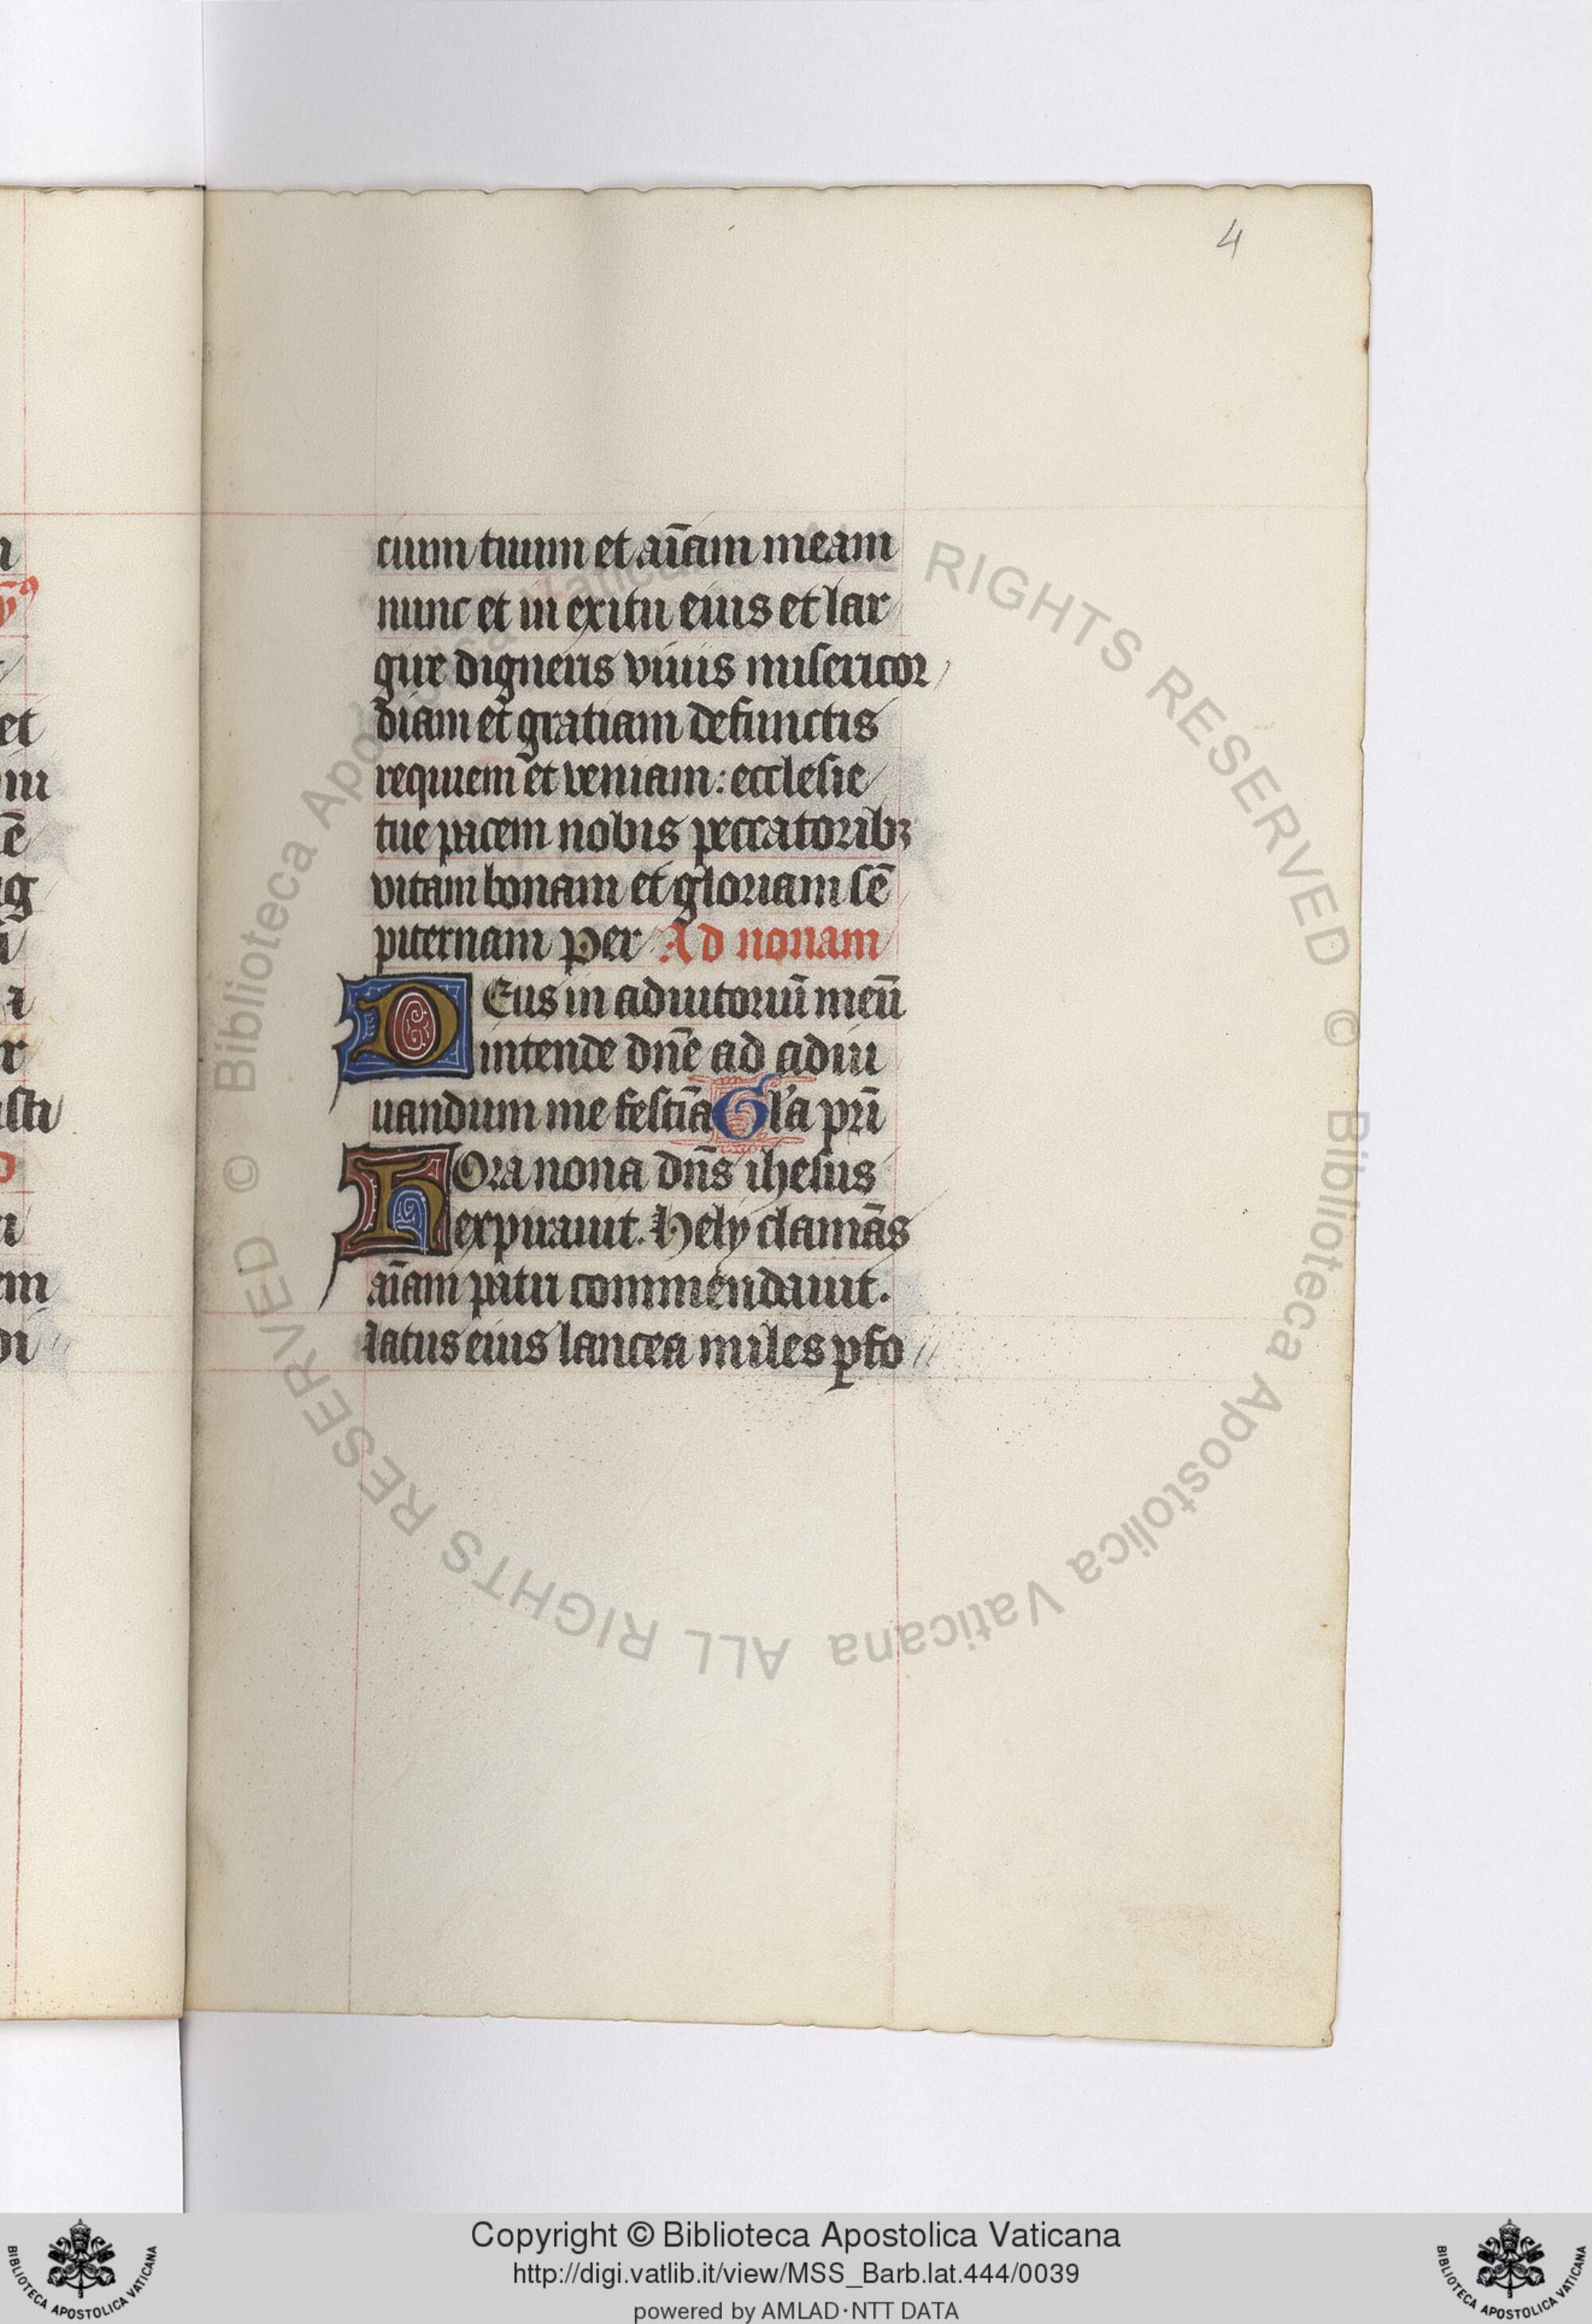 4
cium tuum et aīam meam
nunc et in exitu eius et lar
gire digneris viuis misericor
diam et gratiam defunctis
requiem et veniam: ecclesie
tue pacem nobis peccatoribꝫ
vitam bonam et gloriam sē
piternam per Ad nonam
DEus in adiutoriū meū
intende dn̄e ad adiu
uandum me festiā Gl'a pr̄i
HOra nona dn̄s ihesus
expirauit. hely clamās
aīam patri commendauit.
latus eius lancea miles ꝑfo
et
ē
g
sti
em
© Biblioteca Apostolica Vaticana ALL RIGHTS RESERVED © Biblioteca Apostolica Vaticana ALL RIGHTS RESERVED
Copyright © Biblioteca Apostolica Vaticana
http://digi.vatlib.it/view/MSS_Barb.lat.444/0039
powered by AMLAD·NTT DATA
BIBLIOTECA APOSTOLICA VATICANA
BIBLIOTECA APOSTOLICA VATICANA